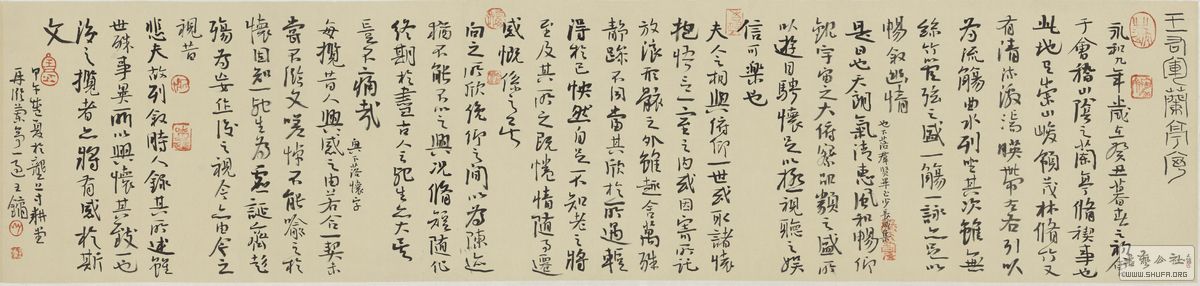 王右軍蘭亭序
永和九年歲在癸丑暮春之初會
于會稽山陰之蘭亭脩禊事也
此地有崇山峻領茂林脩竹又
有清流激湍暎帶左右引以
為流觴曲水列坐其次雖無
絲竹管弦之盛一觴一詠亦足以
暢敘幽情
也下落群賢畢至少長咸集
是日也天朗氣清惠風和暢仰
觀宇宙之大俯察品類之盛所
以遊目騁懷足以極視聽之娛
信可樂也
夫人之相與俯仰一世或取諸懷
抱悟言一室之內或因寄所託
放浪形骸之外雖趣舍萬殊
靜躁不同當其欣於所遇輒
得於己怏然自足不知老之將
至及其所之既惓情隨事遷
感慨係之矣
向之所欣俛仰之間以為陳迹
猶不能不以之興況脩短隨化
終期於盡古人云死生亦大矣
豈不痛哉
興下落懷字
每攬昔人興感之由若合一契未
嘗不臨文嗟悼不能喻之於
懷固知一死生為虛誕齊彭
殤為妄作後之視今亦由今之
視昔
悲夫故列敘時人錄其所述雖
世殊事異所以興懷其致一也
後之攬者亦將有感於斯
文
甲午夏於寸耕堂
再臨蘭亭一過王鏞
WWW.SHUFA.ORG